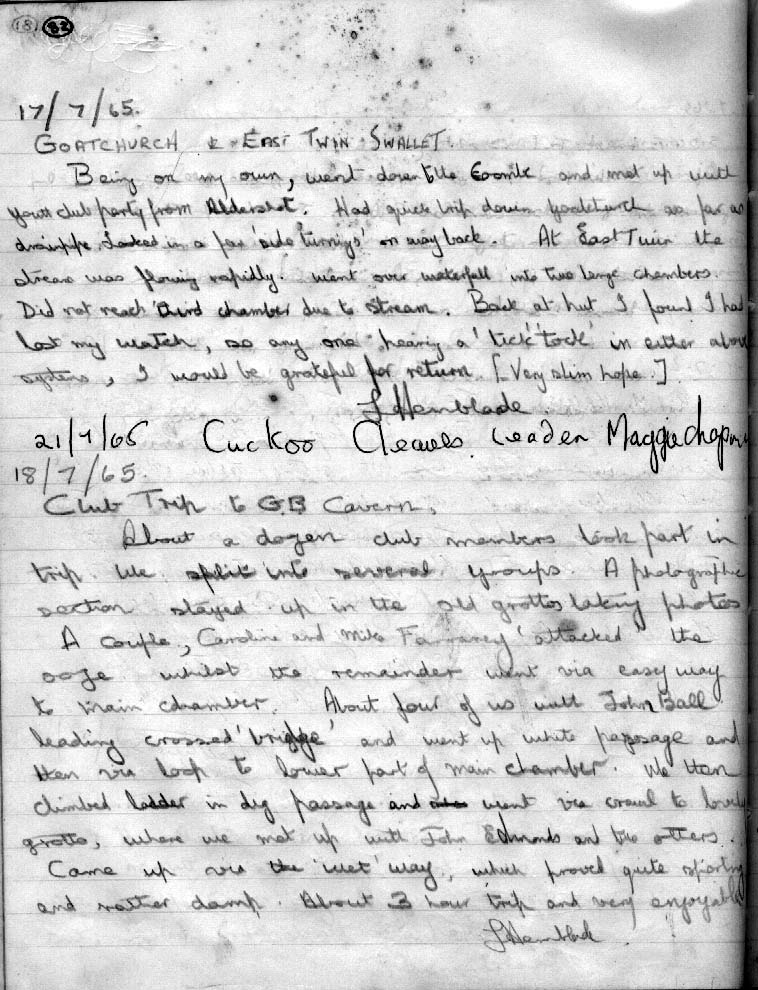 18. 82
17/7/65.
GOATCHURCH & EAST TWIN SWALLET
Being on my own, went down the Coombe and met up with
youth club party from Aldershot. Had quick trip down goatchurch as far as
drainpipe. Looked in a few 'side turnings' on way back. At East Twin the
stream was flowing rapidly. Went over waterfall into two large chambers.
Did not reach third chamber due to stream. Back at hut I found I had
lost my watch, so any one hearing a 'tick' 'tock' in either above
systems, I would be grateful for return. [Very slim hope.]
L Hemblade
21/7/65 Cuckoo Cleeves. Leader Maggie Chapm
18/7/65.
Club Trip to G.B Cavern.
About a dozen club members took part in
trip. We split into several groups. A photographic
section stayed up in the old grottos taking photos
A couple, Caroline and Mike 'attacked' the
ooze whilst the remainder went via easy way
to main chamber. About four of us with John Ball
leading crossed 'bridge' and went up white passage and
then via loop to lower part of main chamber. We then
climbed ladder in dig passage and went via crawl to lovely
grotto, where we met up with John Edmonds and two others.
Came up via the 'wet' way, which proved quite sporting
and rather damp. About 3 hour trip and very enjoyable
L Hemblade